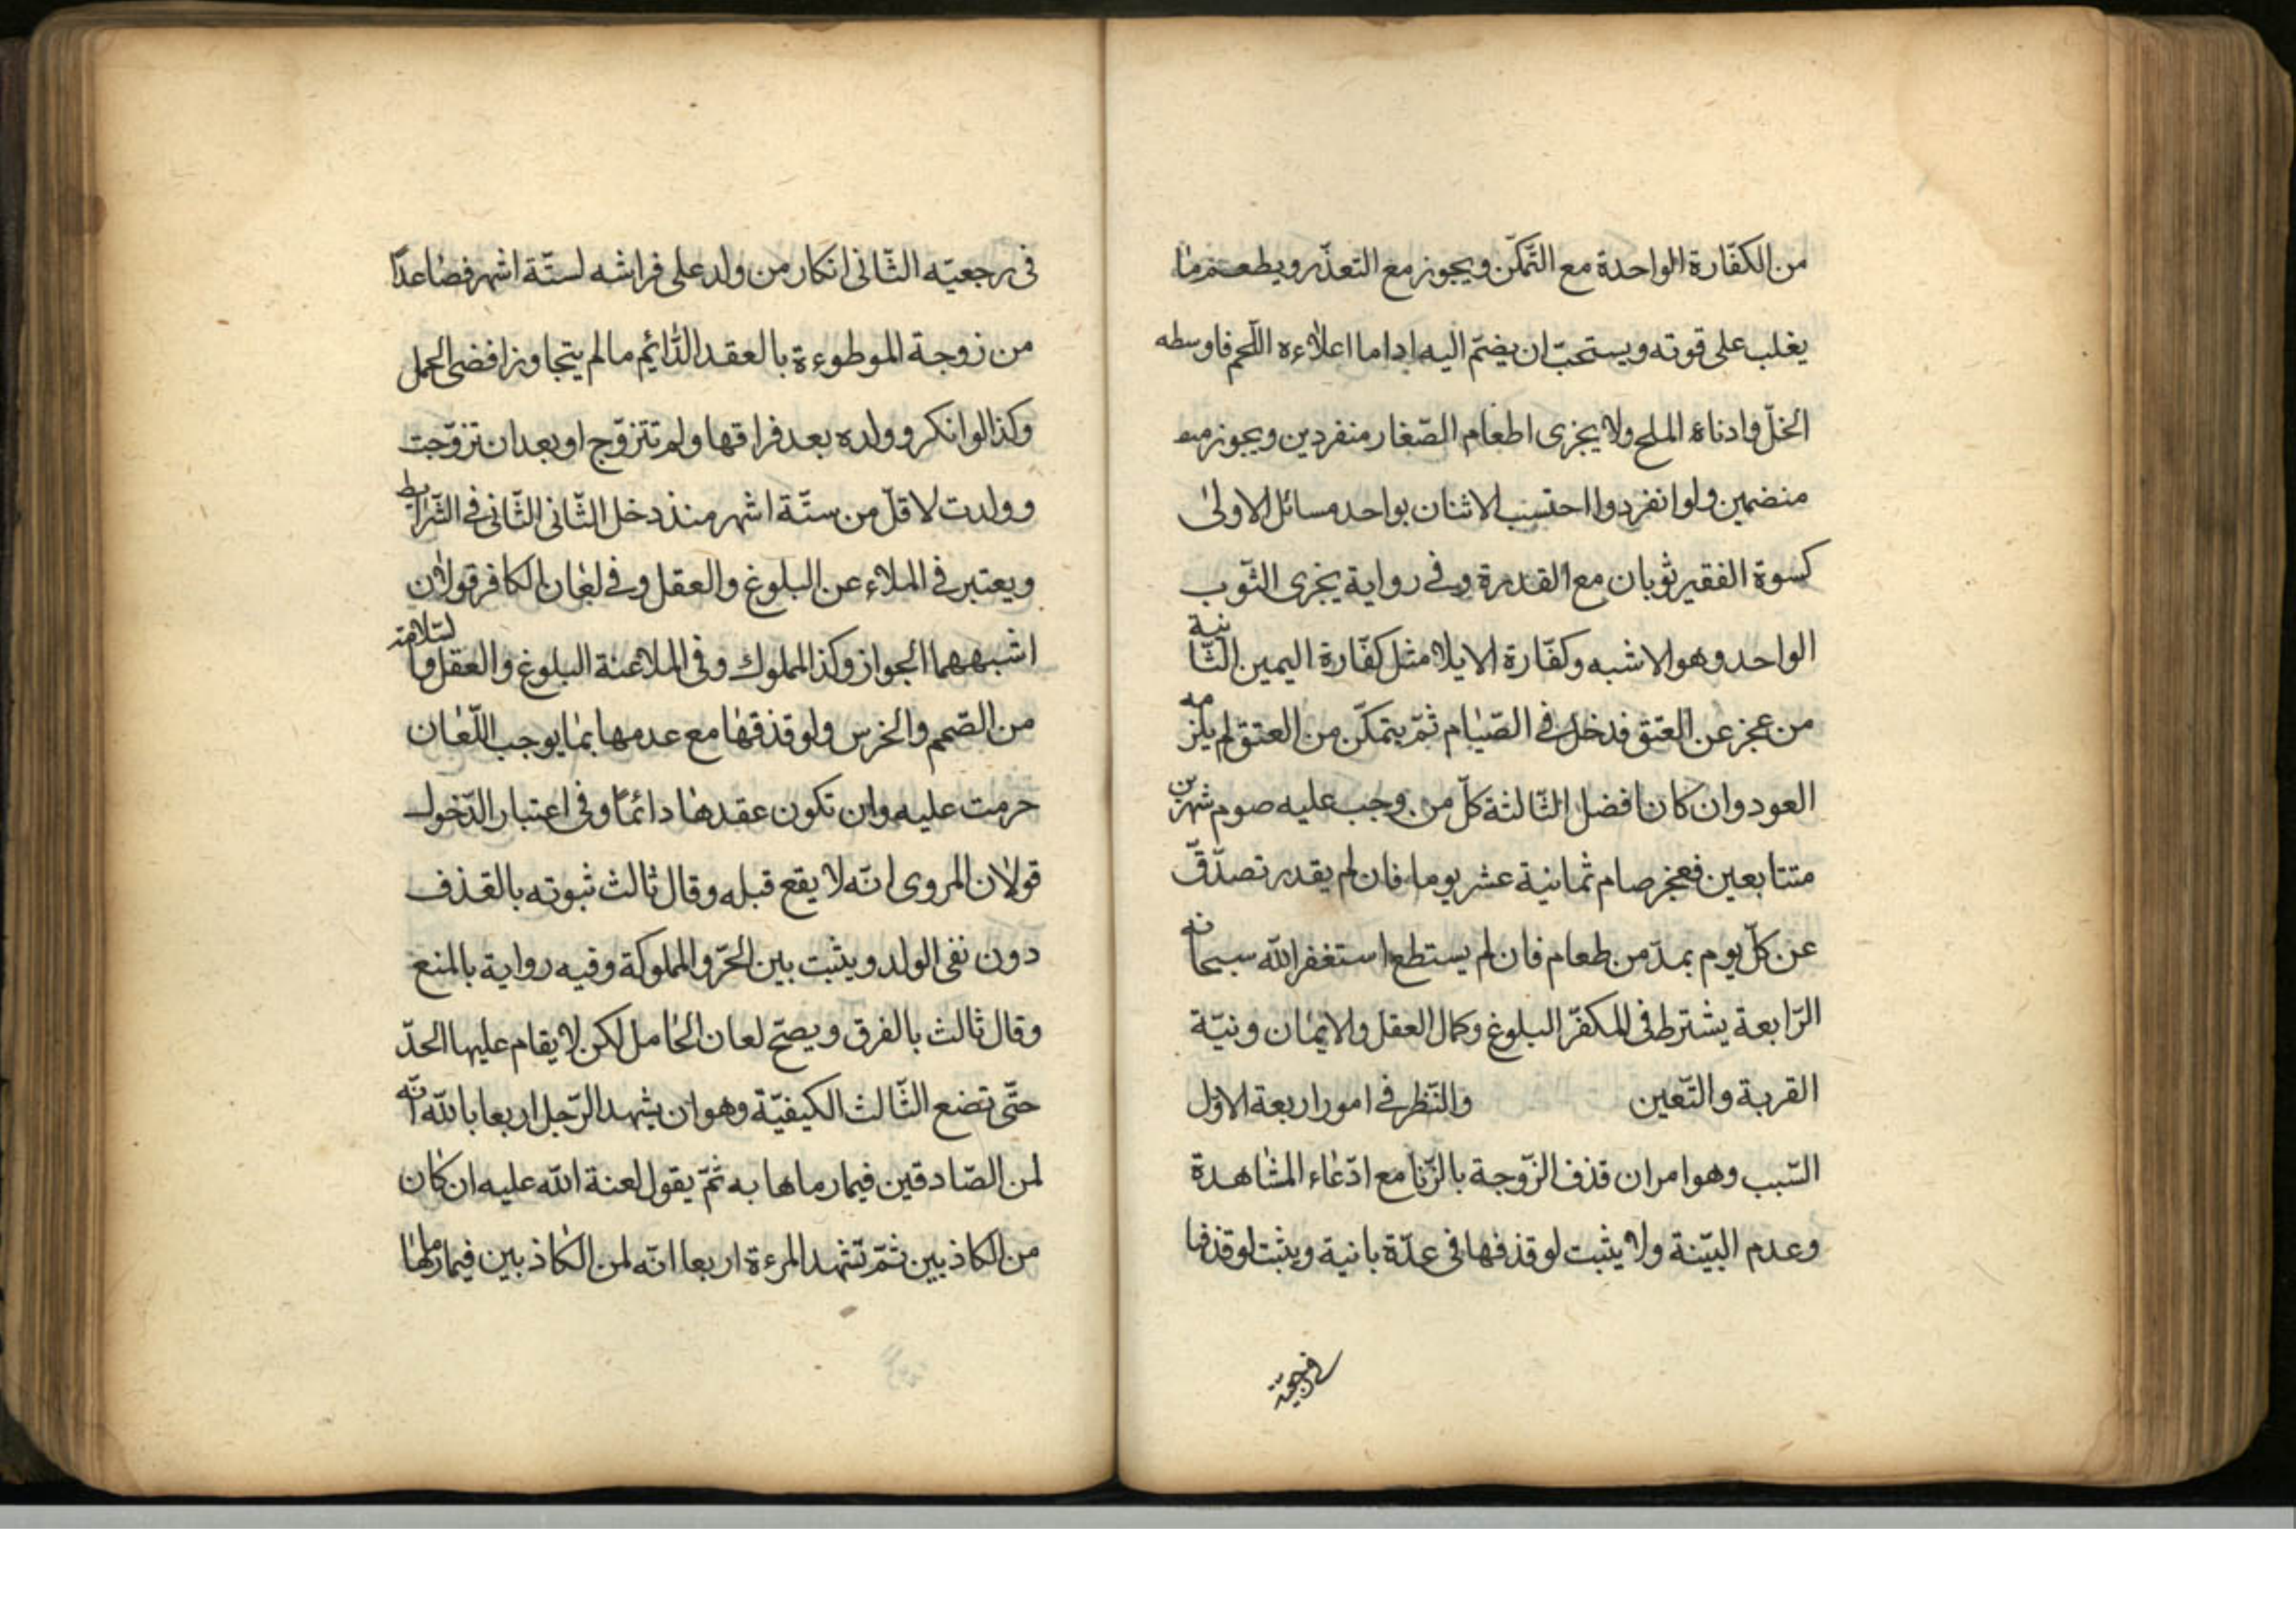 من الكفّارة الواحدة مع التّمكّن ويجوز مع التعذّر ويطعم ما
يغلب على قوته ويستحبّ ان يضمّ اليه اداما اعلاءه اللّحم فاوسطه
الخلّ وادناه الملح ولا يجزى اطعام الصّغار منفردين ويجوز
منضمين ولو انفردوا احتسب الاثنان بواحد مسائل الاولىٰ
كسوة الفقير ثوبان مع القدرة وفى رواية يجزى الثّوب
الواحد وهو الاشبه وكفّارة الايلا مثل كفّارة اليمين الثّانية
من عجز عن العتق فدخل فى الصّيام ثمّ يتمكّن من العتق لم يلزمه
العود وان كان افضل الثّالثة كلّ من وجب عليه صوم شهرين
متتابعين فعجز صام ثمانية عشر يوما فان لم يقدر تصدّق
عن كلّ يوم بمدّ من طعام فان لم يستطع استغفر الله سبحانه
الرّابعة يشترط فى المكفّر البلوغ وكمال العقل والايمان ونيّة
القربة والتّعين والنّظر فى امور اربعة الاوّل
السّبب وهو امران قذف الزّوجة بالزّنا مع ادّعاء المشاهدة
وعدم البيّنة ولا يثبت لو قذفها فى عدّة بانية ويثبت لو قذفها
فى رجعيّة
فى رجعيّه الثّانى انكار من ولد على فراشه لستّة اشهر فصاعدًا
من زوجة الموطوءة بالعقد الدّائم ما لم يتجاوز اقضى الحمل
وكذا لو انكر وولده بعد فراقها ولم تتزوّج او بعد ان تزوّجت
وولدت لاقلّ من ستّة اشهر منذ دخل الثّانى الثّانى فى الشّرايط
ويعتبر فى الملاء عن البلوغ والعقل وفى لعان الكافر قولان
اشبههما الجواز وكذا المملوك وفى الملاعنة البلوغ والعقل والسّلامة
من الصّمم والخرس ولو قذفها مع عدمها بما يوجب اللّعان
حرمت عليه وان تكون عقدها دائمًا وفى اعتبار الدّخول
قولان المروى انّه لا يقع قبله وقال ثالث ثبوته بالقذف
دون نفى الولد ويثبت بين الحرّ والمملوكة وفيه رواية بالمنع
وقال ثالث بالفرق ويصحّ لعان الحامل لكن لا يقام عليها الحدّ
حتّى تضع الثّالث الكيفيّة وهو ان يشهد الرّجل اربعا بالله انّه
لمن الصّادقين فيما رماها به ثمّ يقول لعنة الله عليه ان كان
من الكاذبين ثمّ تشهد المرءة اربعا انّه لمن الكاذبين فيما رماها